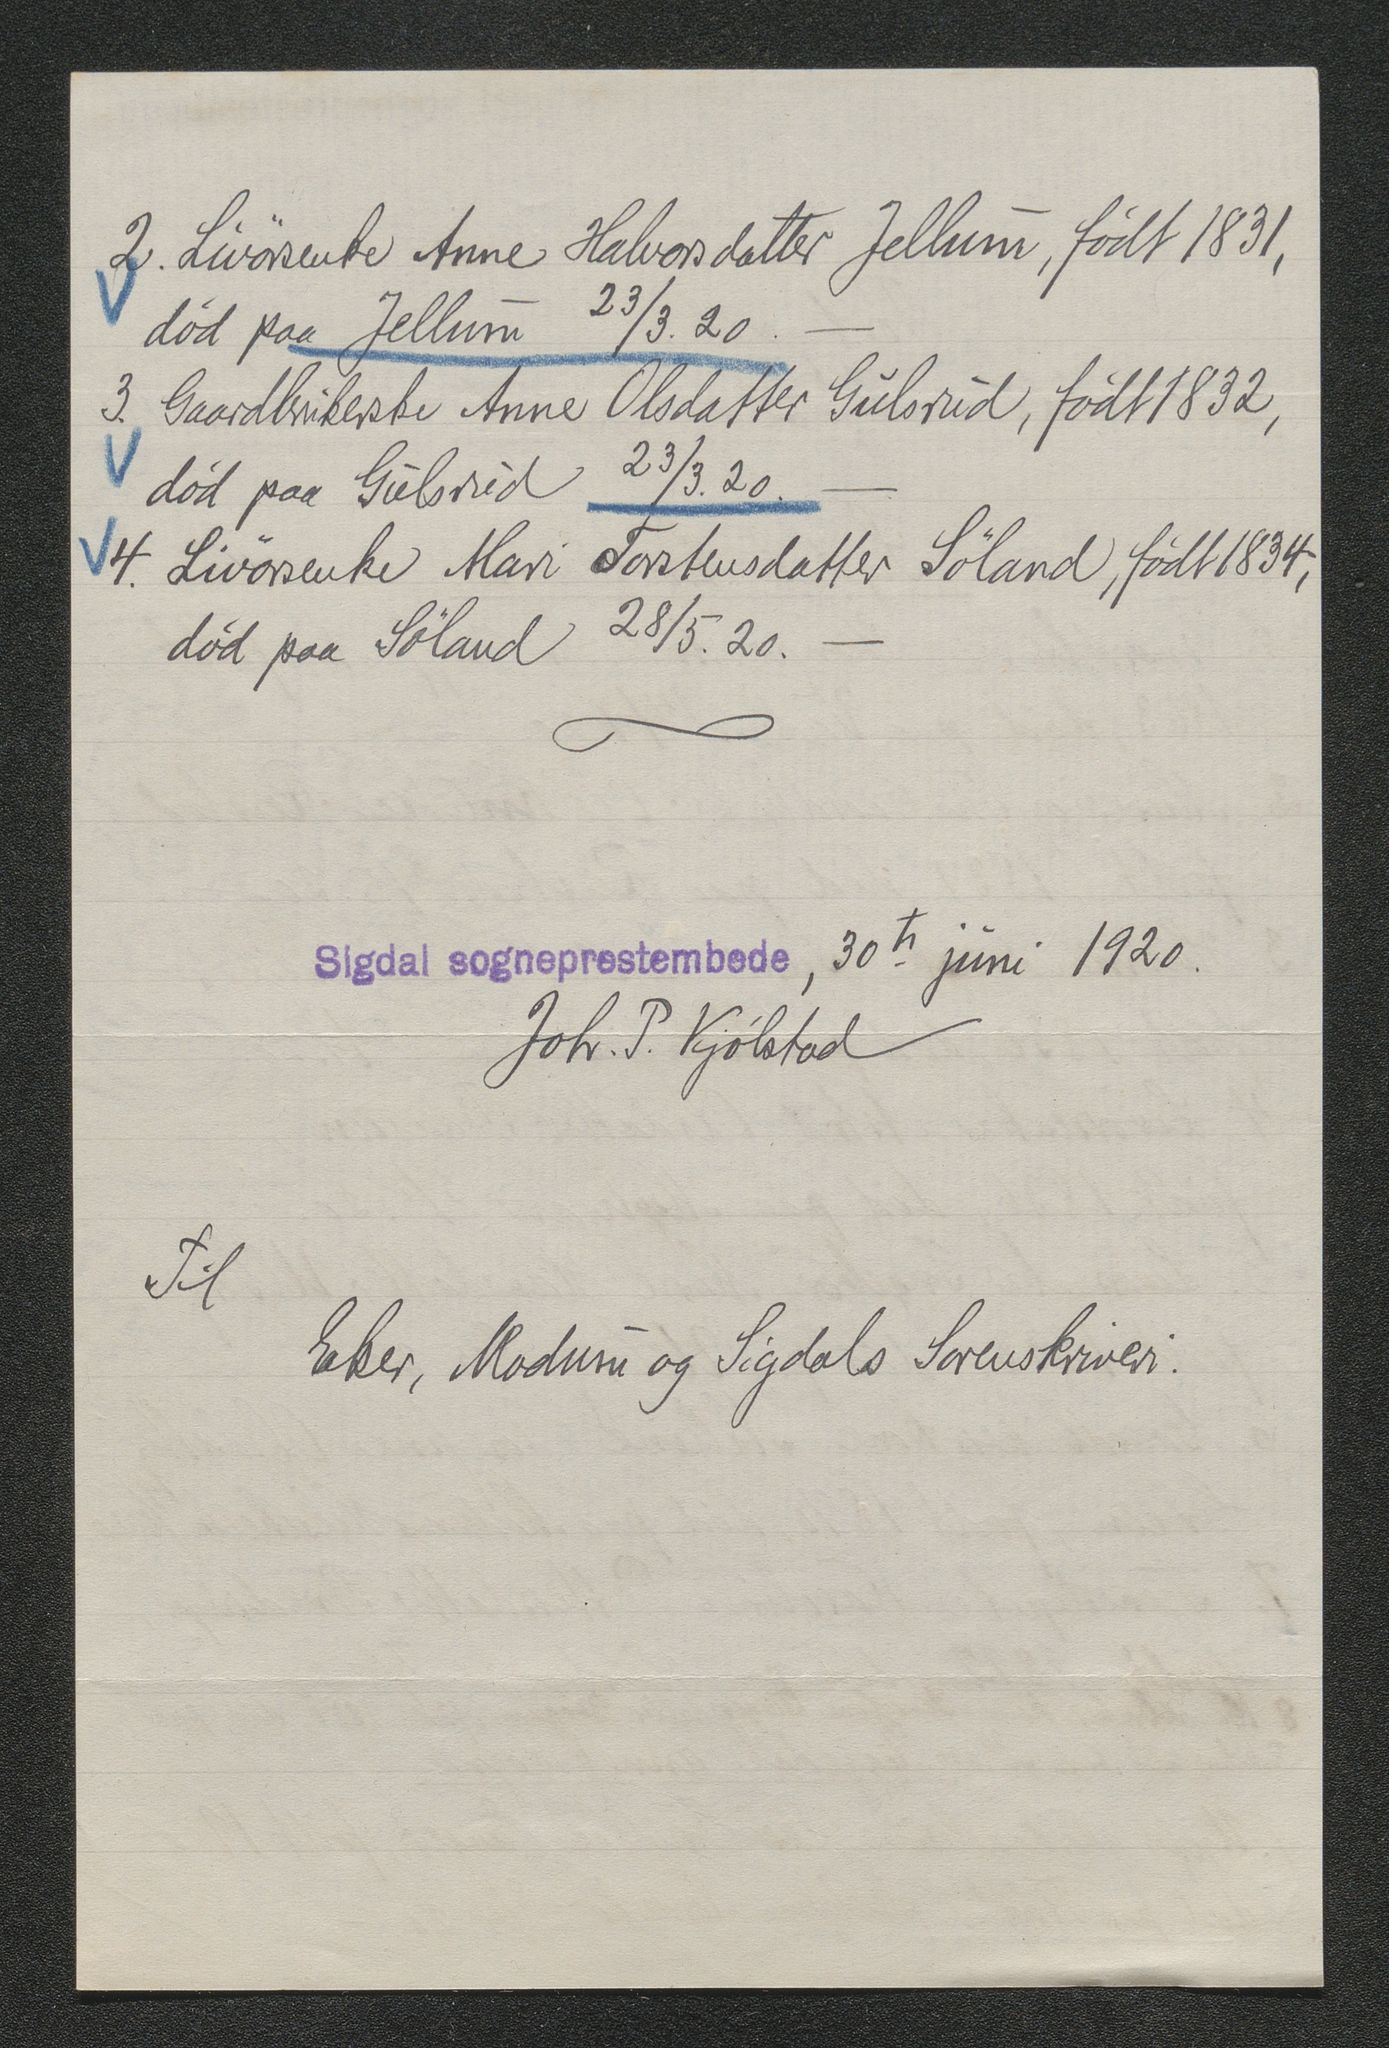 2. Livörsenke Anne Halvorsdatter Jellum, födt 1831,
död paa Jellum 23/3. 20. —
3. Gaardbrukerske Anne Olsdatter Gulsrud, födt 1832,
död paa Gulsrud 23/3. 20. —
4. Livörsenke Mari Torstensdatter Söland, födt 1834,
död paa Söland 28/5. 20. —
Sigdal sogneprestembede, 30te juni 1920.
Joh. P. Kjölstad
Til
Eker, Modum og Sigdals Sorenskriveri.